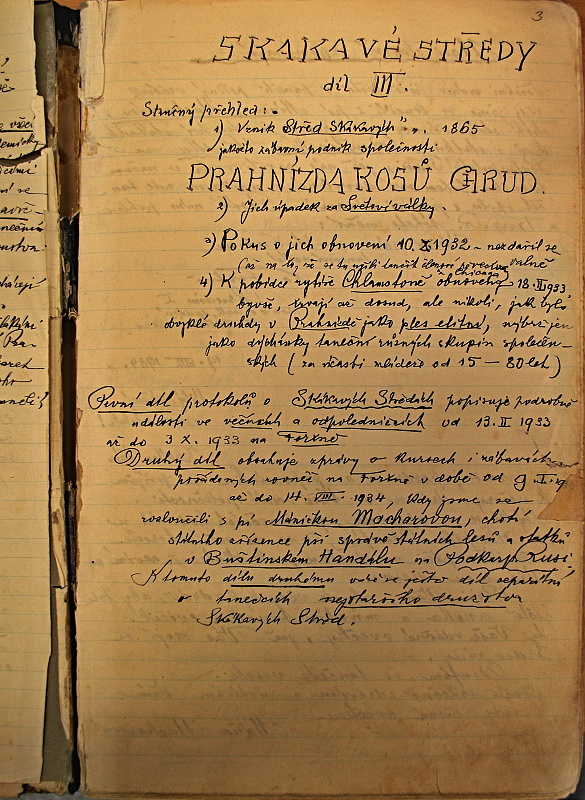 3
SKÁKAVÉ STŘEDY
díl III.
Stručný přehled:
1) Vznik „Střed Skákavých" r. 1865
jakožto zábavní podnik společnosti
PRAHNÍZDA KOSŮ CHRUD.
2) Jich úpadek za Světové války.
3) Pokus o jich obnovení 10. X 1932 – nezdařil se
(až na to, že se tu
4) K pobídce rytíře Chlamstone z Chicaga obnoveny 18. II 1933
byvše, trvají až dosud, ale nikoli, jak bylo
obvyklé druhdy v Prahnízdě jako ples elitní, nýbrž jen
jako dýchánky taneční různých skupin společen-
ských (za účasti mládeže od 15 – 80 let)
První díl protokolů o Skákavých Středách popisuje podrobně
události ve večírcích a odpoledničcích od 13. II 1933
až do 3 X. 1933 na Foržně
Druhý díl obsahuje zprávy o kursech i zábavách
pořádaných rovněž na Foržně v době od 9. I.
až do 14. VIII. 1934, kdy jsme se
rozloučili s pí Máničkou Macharovou, chotí
státního zřízence při správě státních lesů a statků
v Buštinském Handalu na Podkarp. Rusi.
K tomuto dílu druhému váže se ještě díl separátní
o tanečcích nejstaršího družstva
Skákavých Střed.